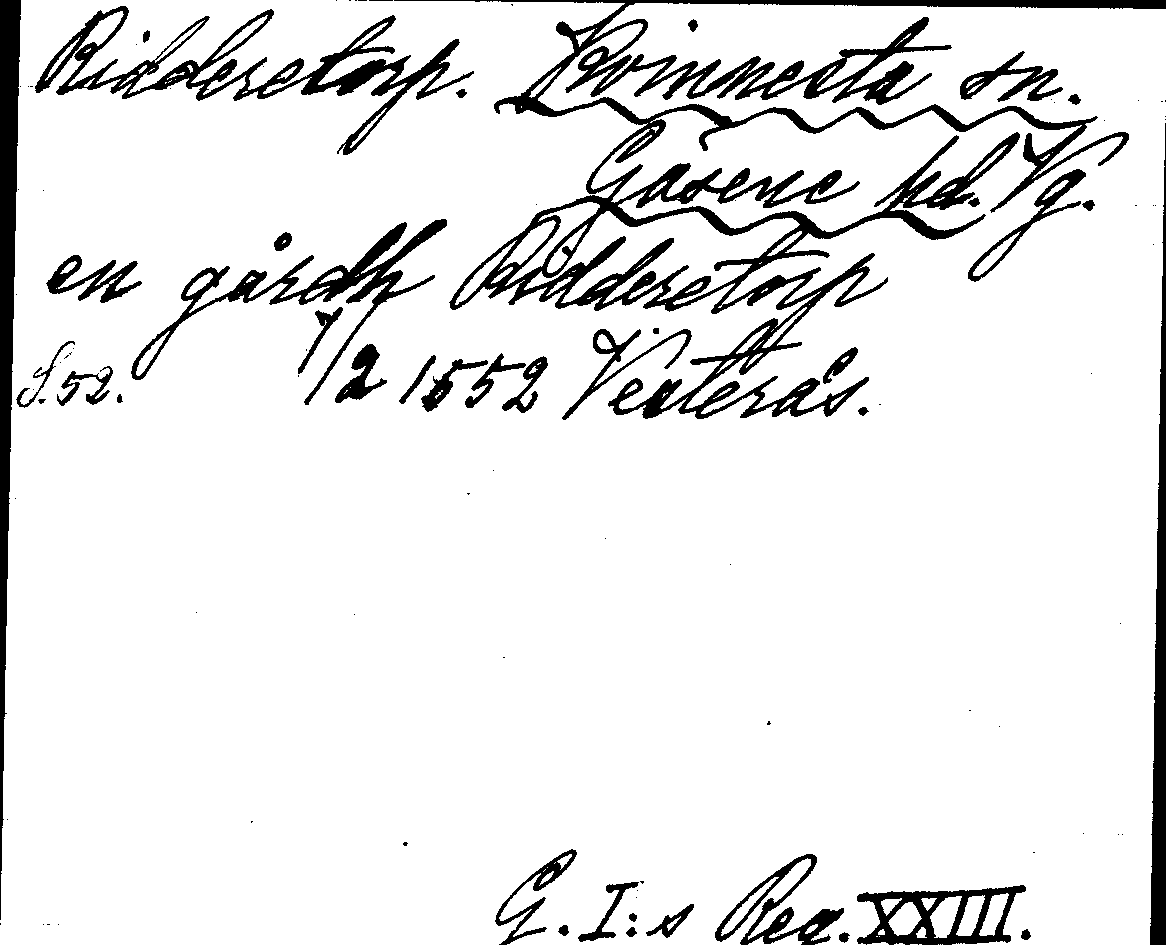 Ridderstorp. Kvinnesta sn.
Gäsene hd. Vg.
en gårdh Ridderstorp
S. 52. 1/2 1552 Vesterås.
G. I:s Reg. XXIII.